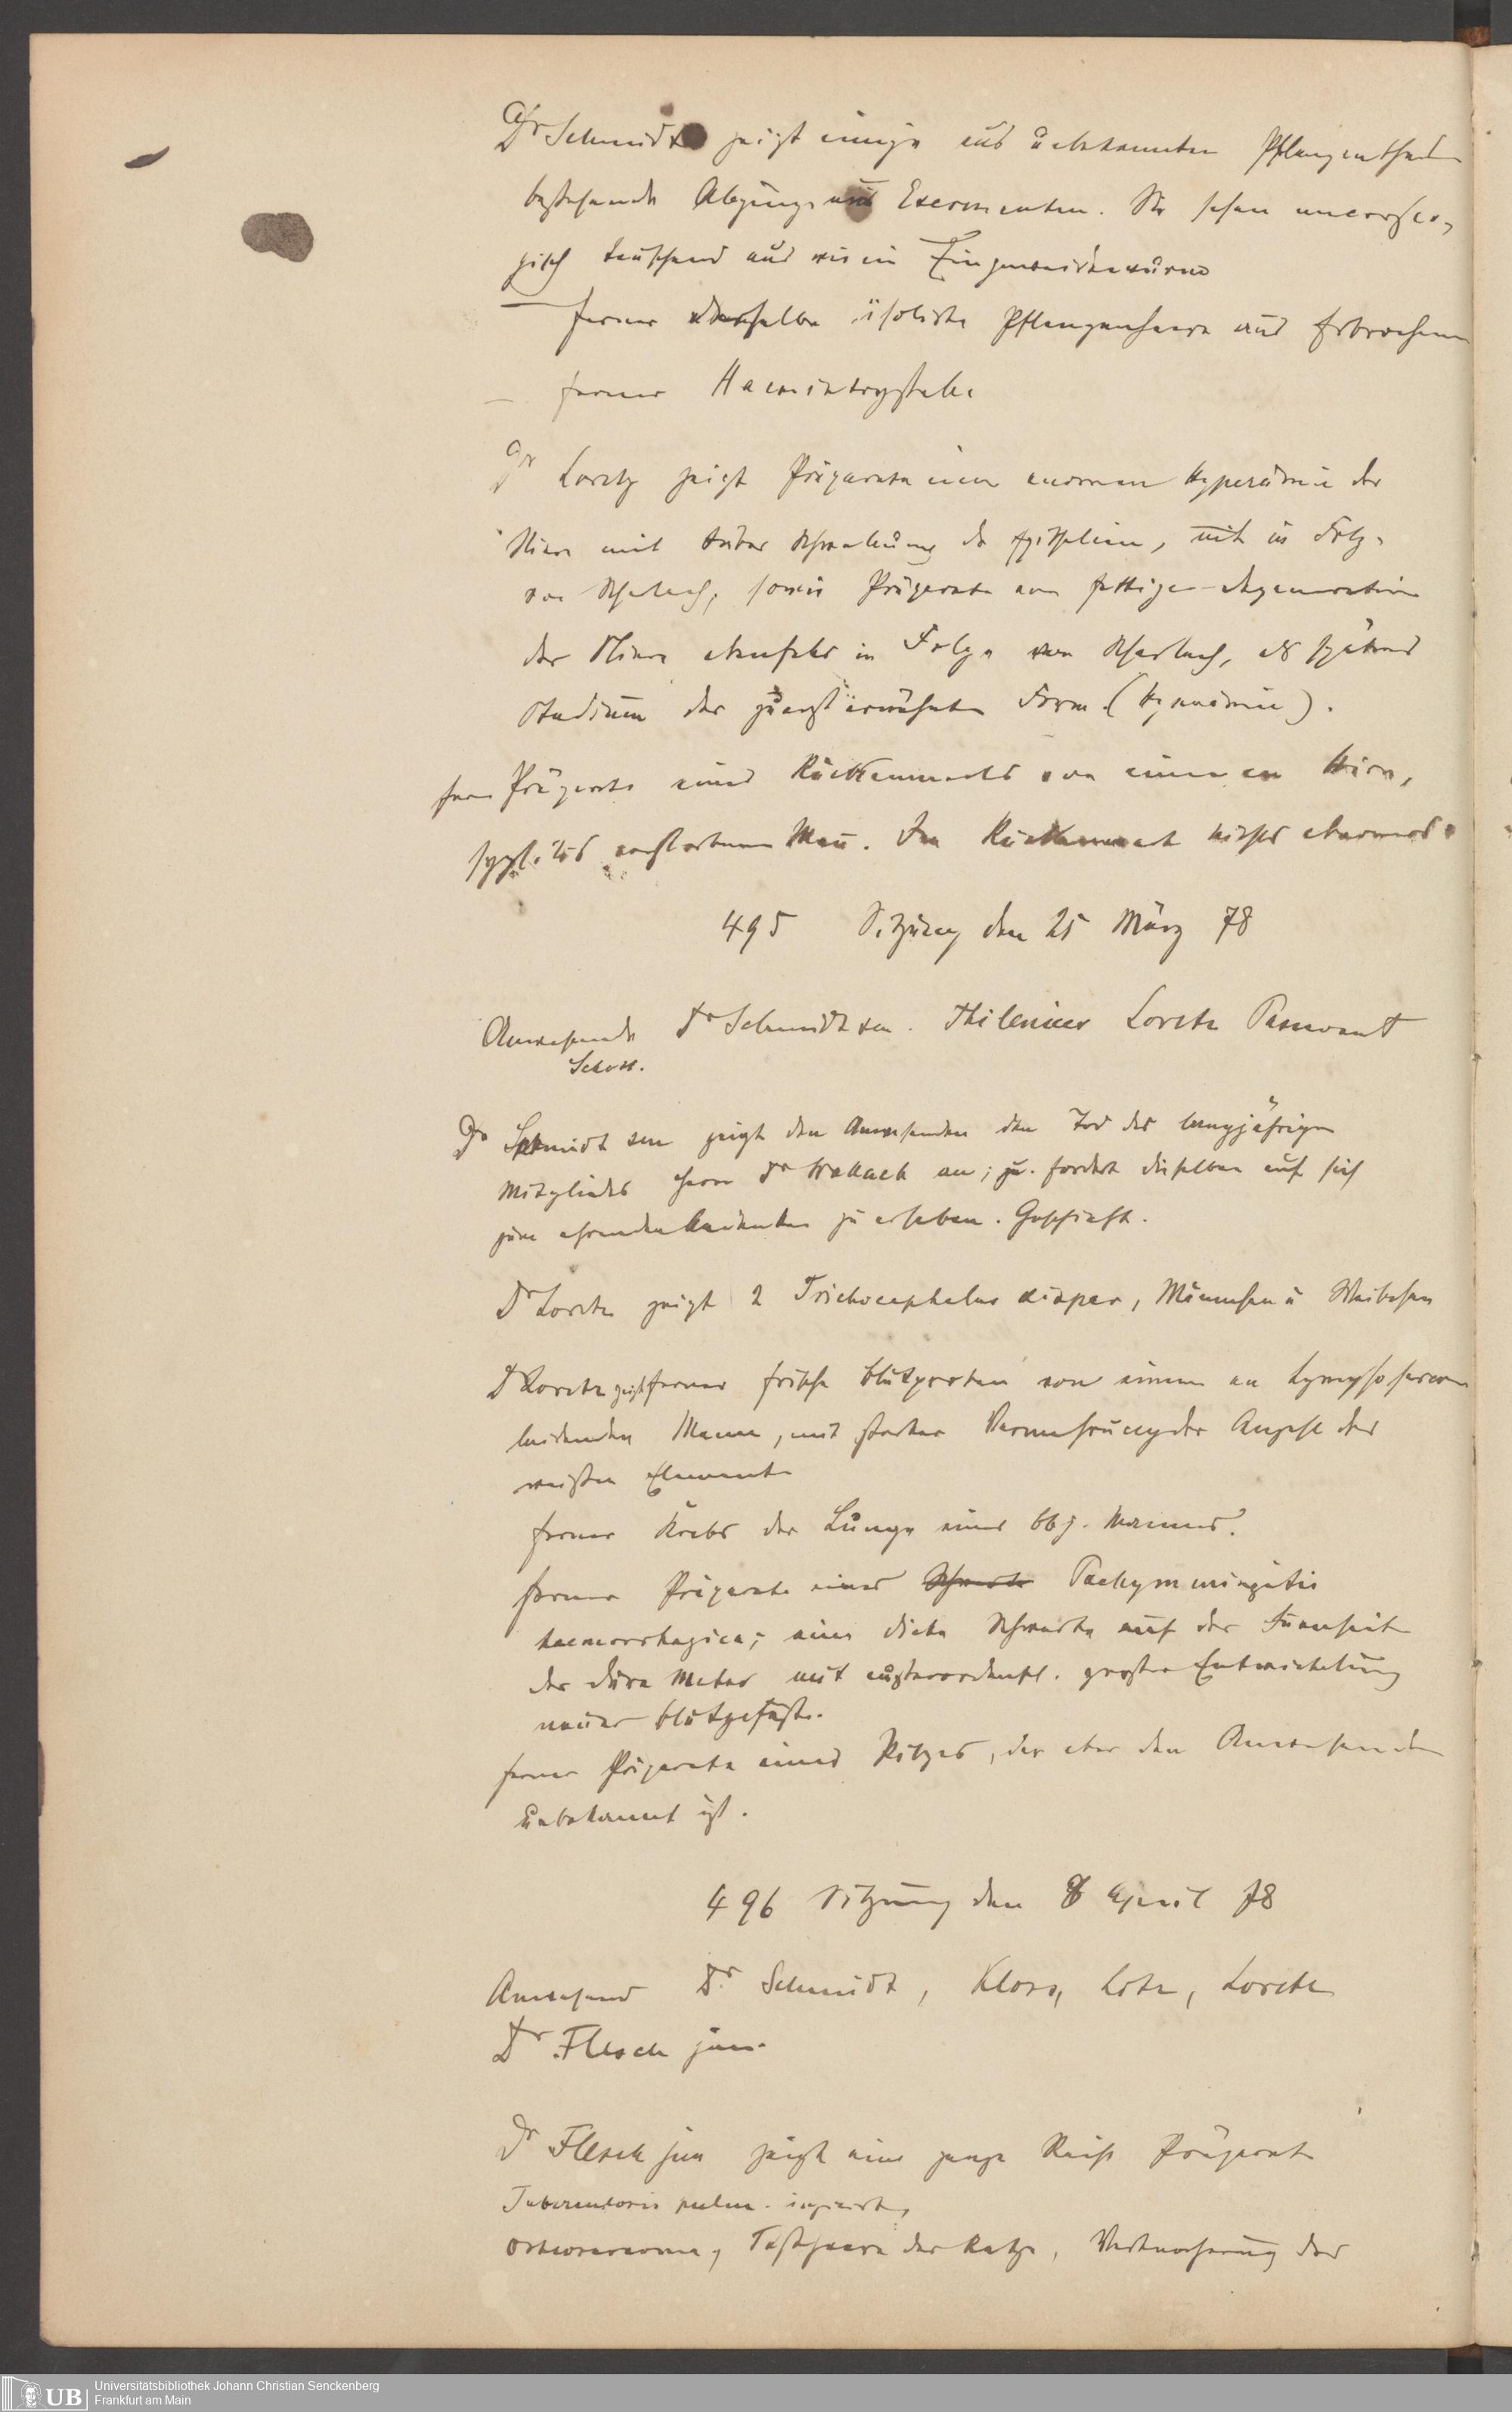 Dr Schmidt zeigt einige aus unbekannten Pflanzentheilen
bestehende Abgänge aus Excrementen. Sie sehen
täuschend aus wie ein Eingeweidewurm
ferner derselbe isolirte Pflanzenhaare aus Erbrochenem
ferner Haeminkrystalle
Dr Loretz zeigt Präparate einer enormen Hyperämie der
Niere mit trüber Schwellung der Epithelien, in Folge
von Scharlach, sowie Präparate von fettiger Degeneration
der Niere ebenfalls in Folge von Scharlach, als späteres
Stadium der zuerst erwähnten Form (Hyperämie).
ferner Präparate eines Rückenmarks von einem an Hirn,
syphilis verstorbenen Mann. Im Rückenmark nichts abnormes.
495 Sitzung den 25 März 78
Anwesende Dr Schmidt sen. Thilenius Loretz Passavant
Schott.
Dr Schmidt sen zeigt den Anwesenden den Tod des langjährigen
Mitgliedes Herrn Dr Wallach an; u. fordert dieselben auf sich
zum ehrenden Andenken zu erheben. Geschieht.
Dr Loretz zeigt 2 Trichocephalus dispar, Männchen u Weibchen
Dr Loretz zeigt ferner frische Blutproben von einem an Lymphosarcom
leidenden Manne, mit starker Vermehrung der Anzahl der
weißen Elemente
ferner Krebs der Lunge eines 66j. Mannes.
ferner Präparate einer Schwarte Pachymeningitis
haemorrhagica; eine dicke Schwarte auf der Innenseite
der dura Mater mit außerordentl. großer Entwickelung
neuer Blutgefäße.
ferner Präparate eines Pilzes, der aber den Anwesenden
unbekannt ist.
496 Sitzung den 8 April 78
Anwesend Dr. Schmidt, Kloss, Lotz, Loretz
Dr Flesch jun.
Dr Flesch jun zeigt eine ganze Reihe Präparate
pulm. injicirt,
Osteosarcoma, Tasthaare der Katze, Verknöcherung der
Universitätsbibliothek Johann Christian Senckenberg
Frankfurt am Main
UB